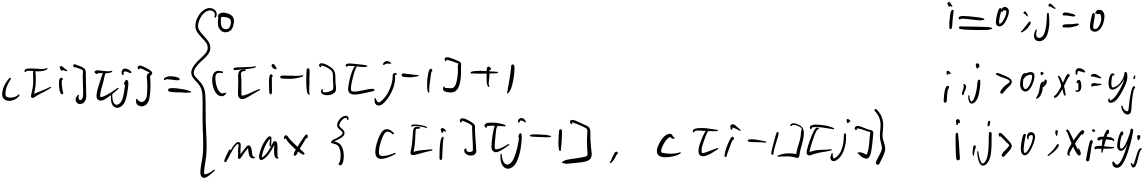 0 i=0;j=0
c[i][j]={c[i-1][j-1]+1 i,j>0;xi=yj
max{c[i][j-1], c[i-1][j]} i,j>0;xi≠yj